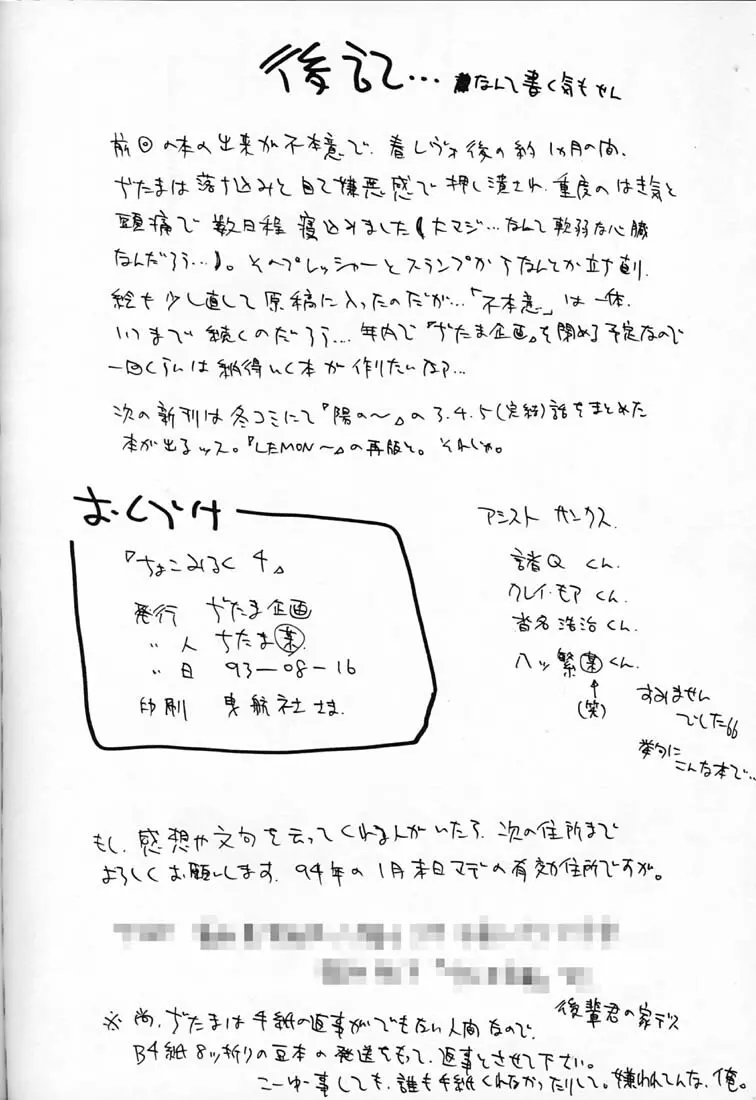 後記… なんて書く気もせん
前回の本の出来が不本意で、春レヴォ後の約1カ月の間、
ぢたまは落ち込みと自己嫌悪感で押し潰され、重度のはき気と
頭痛で数日程寝込みました(大マジ…なんて軟弱な心臓
なんだろう…)。そのプレッシャーとスランプからなんとか立ち直り、
絵も少し直して原稿に入ったのだが…「不本意」は一体、
いつまで続くのだろう…年内で『ぢたま企画』を閉める予定なので
一回くらいは納得いく本が作りたいなァ…
次の新刊は冬コミにて『陽の〜』の3.4.5(完結)話をまとめた
本が出るッス。『LEMON〜』の再版と。それしか。
おくづけ
『ちょこみるく 4』
発行 ぢたま企画
〃 人 ぢたま某
〃 日 93-08-16
印刷 曳航社さま
アシスト サンクス
諸Q くん
クレイ・モア くん
喜名浩治 くん
八ッ繁某くん
↑
(笑)
すみません
でした66
挙句に
こんな本で…
もし、感想や文句を云ってくれる人がいたら、次の住所まで
よろしくお願いします。94年の1月末日マデの有効住所ですが。
後輩君の家デス
※尚、ぢたまは手紙の返事がでもない人間なので、
B4紙8ッ折りの豆本の発送をもって、返事とさせて下さい。
こーゆー事しても、誰も手紙くれなかったりして。嫌われてんな、俺。